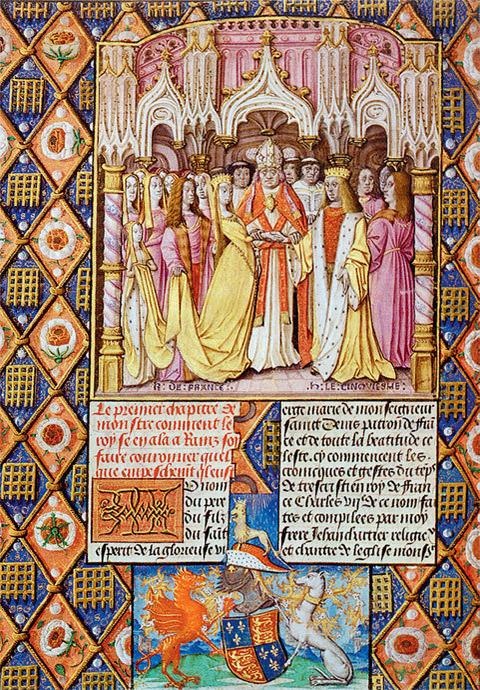 R · DE · FRANCE ·
· h · LE · CINQVIESME :
Le premier chapitre de
mon stre comment le
roy se en ala a Rainz soy
faire couronner quel
que
O nom
du pere
du filz
du saint
esperit de la glorieuse vi
erge marie de monseigneur
sainct Denis patron de
ce et de toute la beatitude ce
leste. cy commencent les
cronicques et gestes du
de trescrestien roy de Fran
ce Charles vij de ce nom fai
tes et compilees par moy
frere Jehan chartier
et chantre de leglise